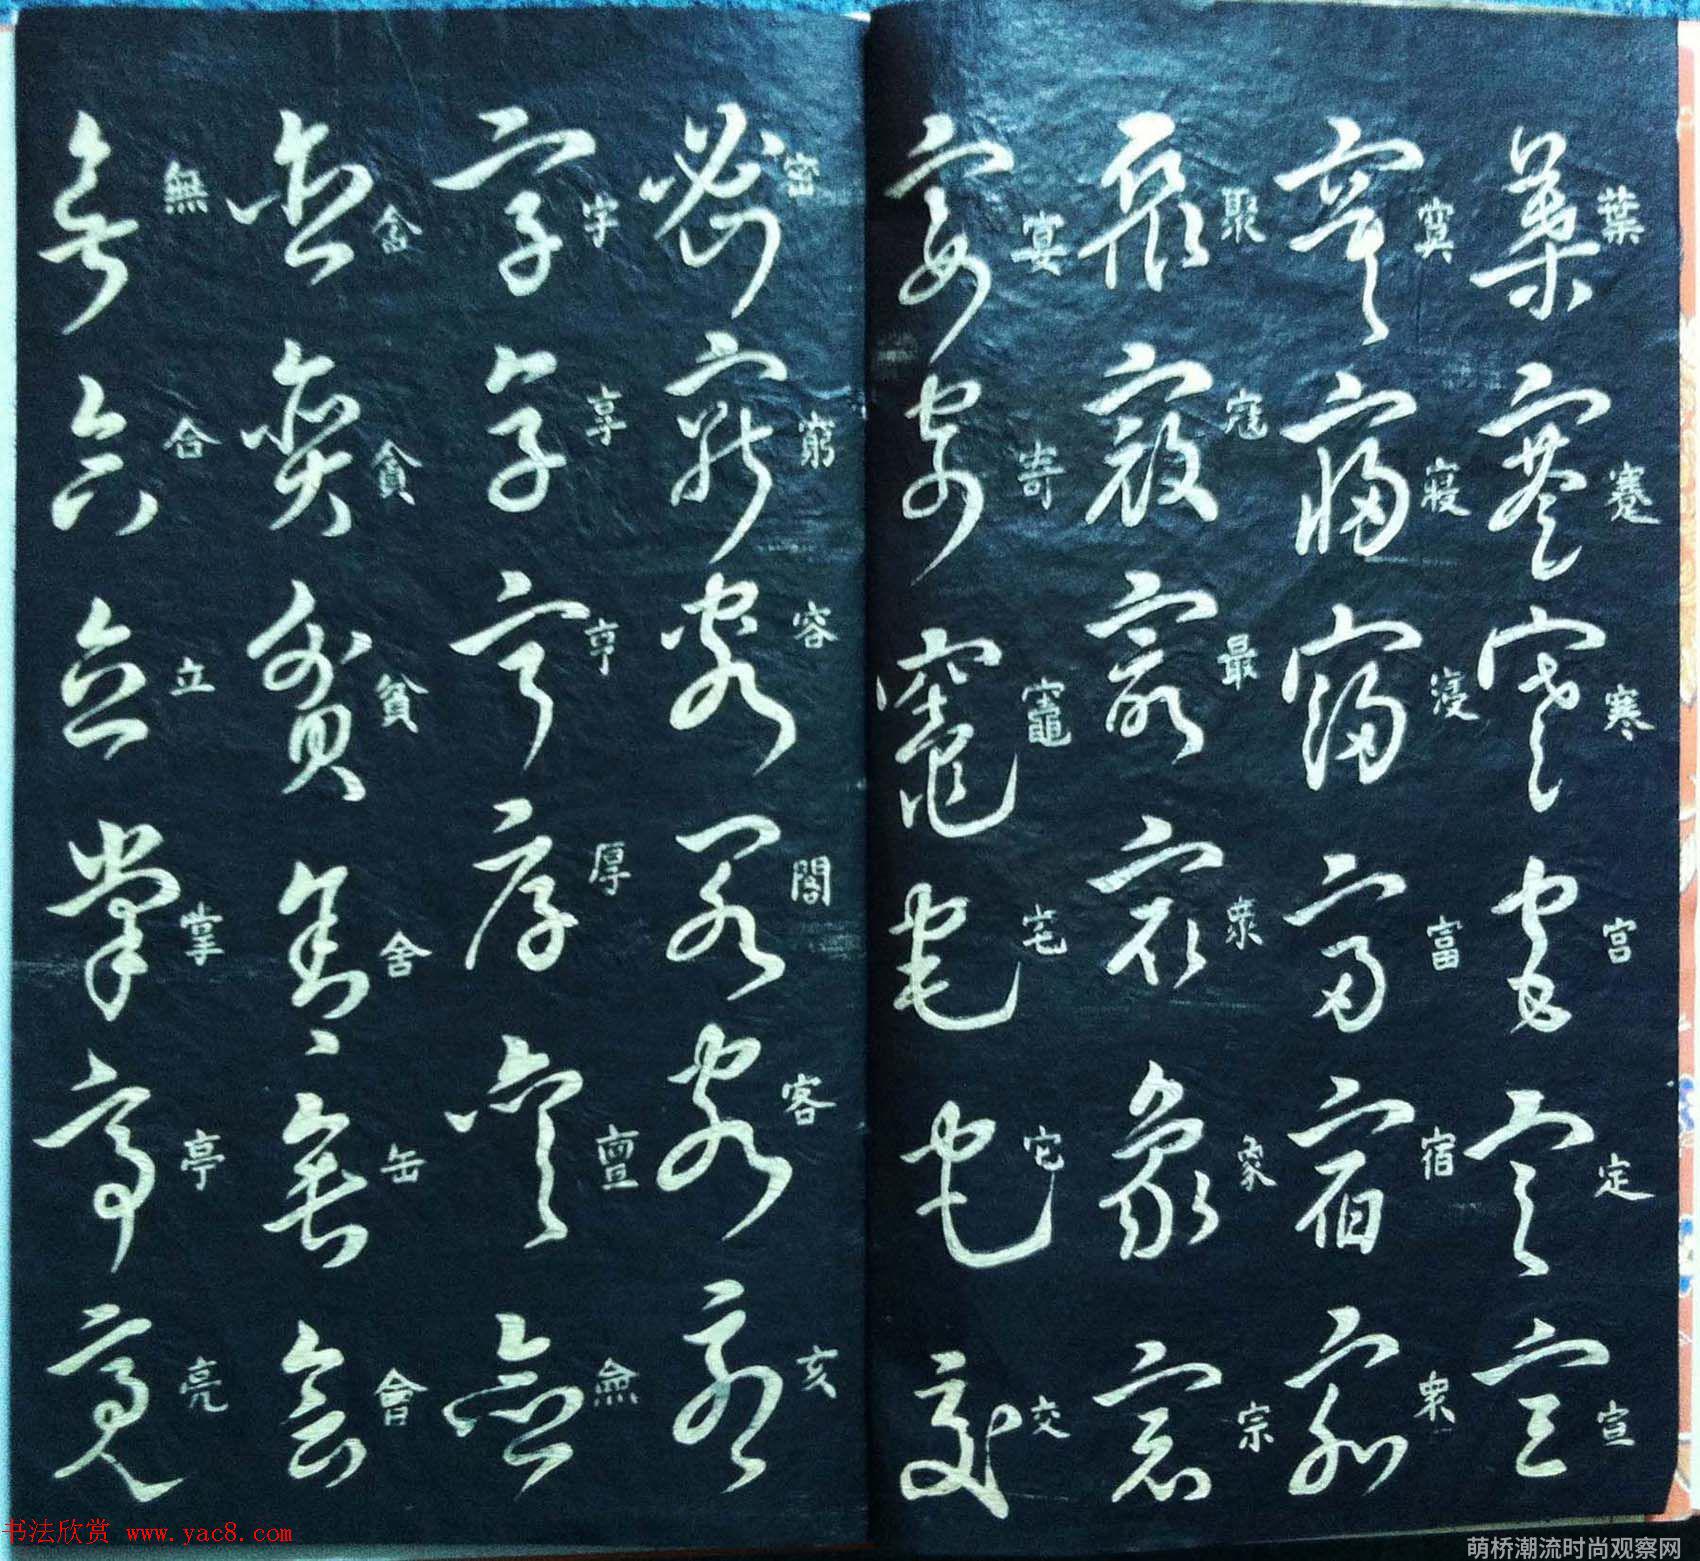 葉蹇寒宫定宣
寞寝寖富宿
聚寇最衆象宗
宴寄竈宅它交
密窮容閣客亥
字享亨厚亶僉
貪貧舍缶會
無合立掌亭亮
书法欣赏 www.yac8.com
萌桥潮流时尚观察网